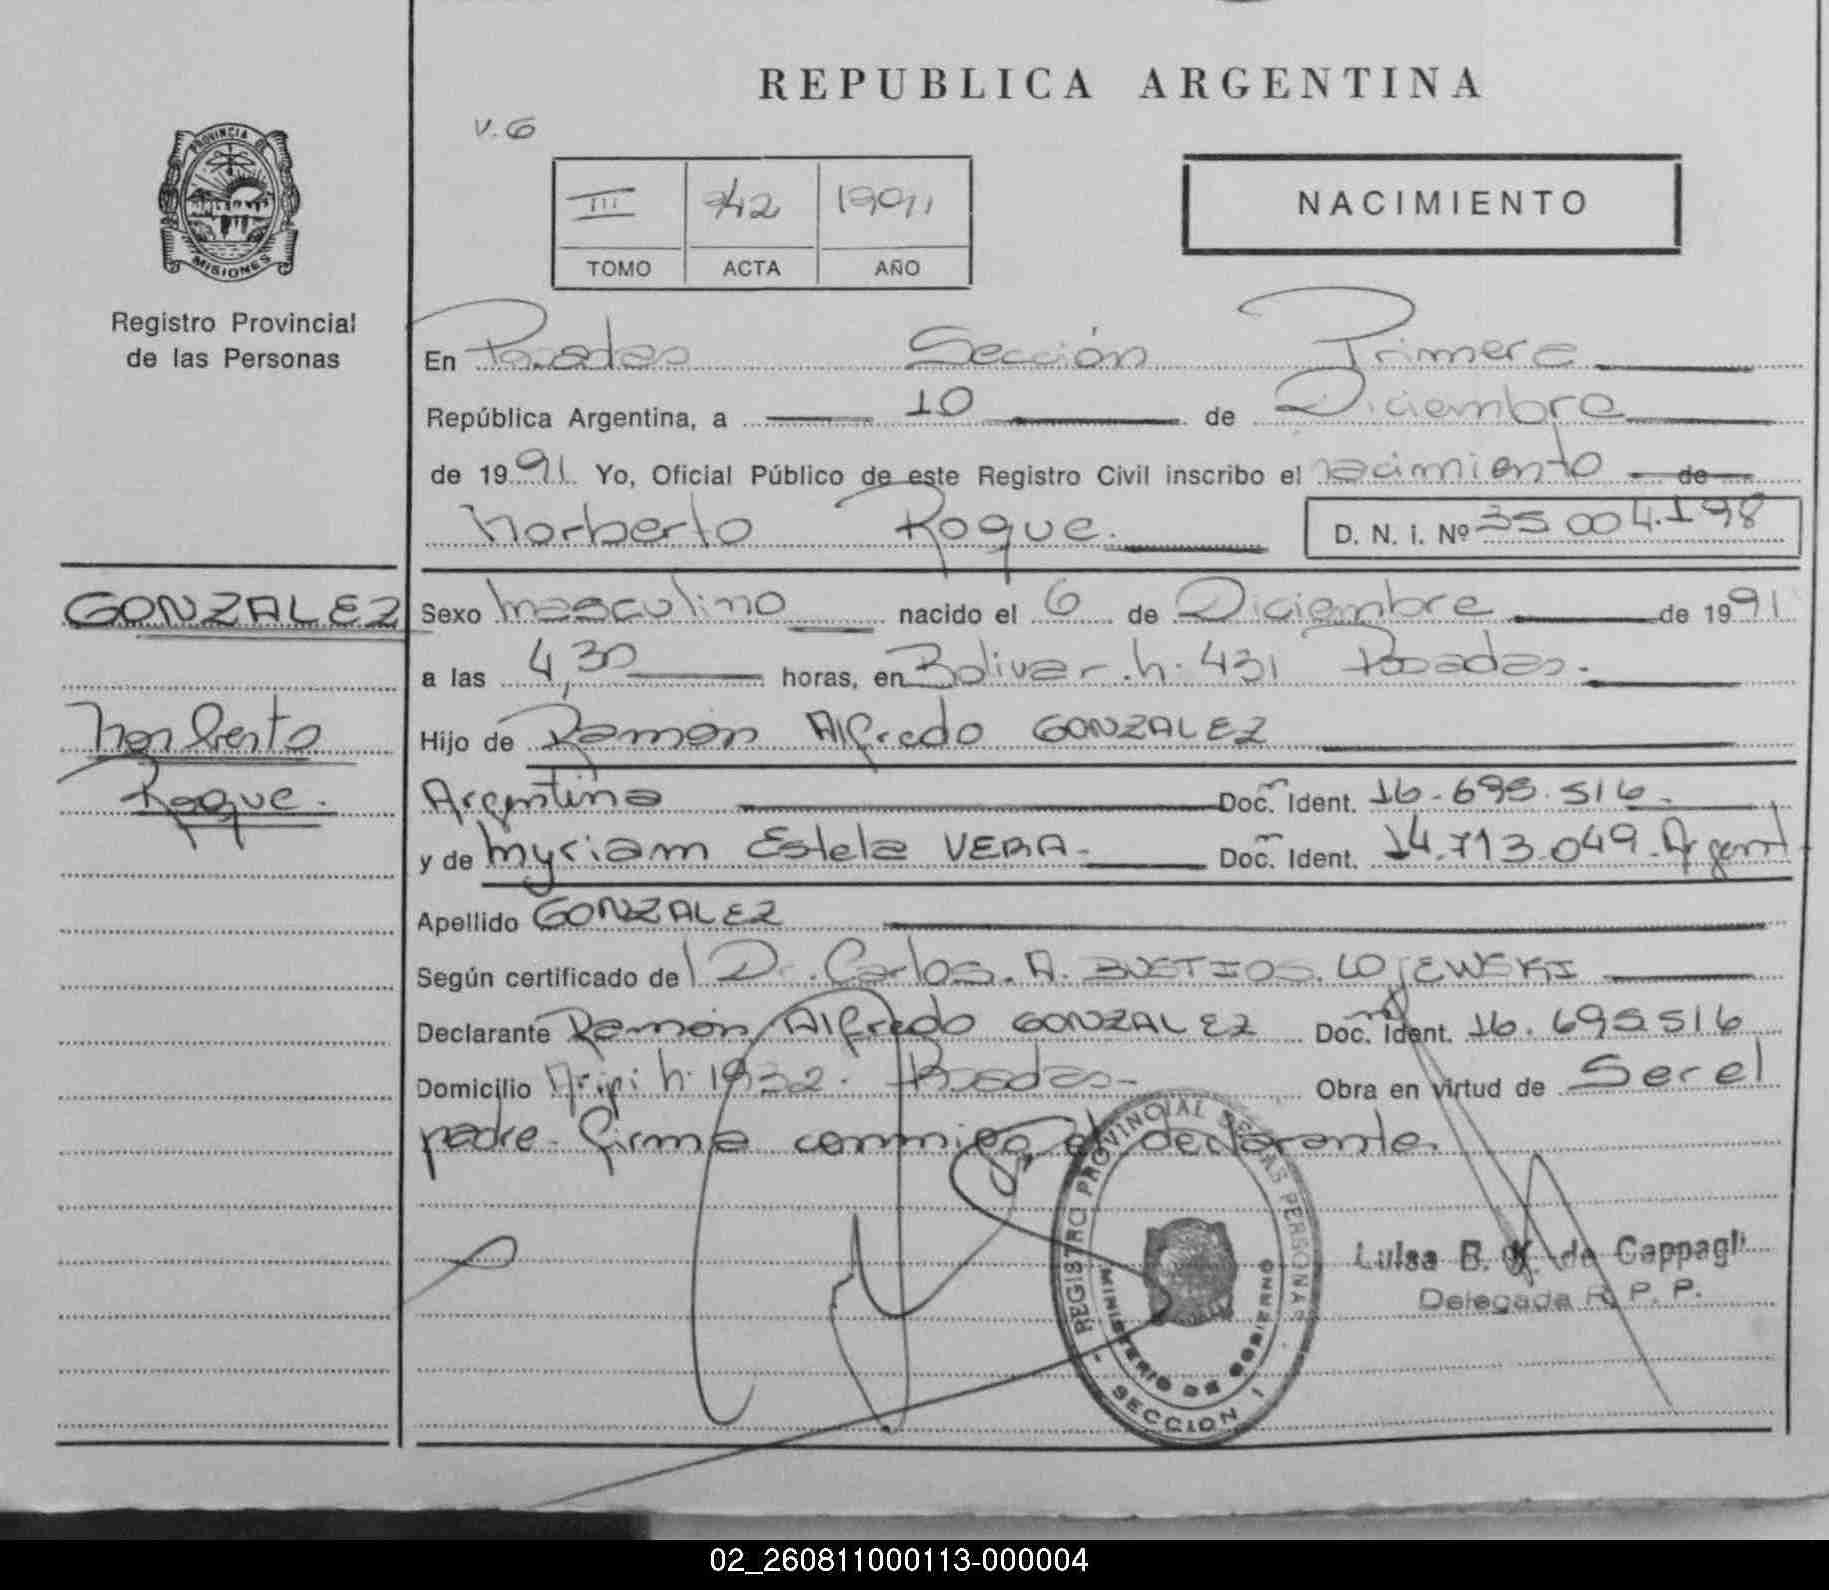 REPUBLICA ARGENTINA
V. G
PROVINCIA DE
MISIONES
Registro Provincial
de las Personas
III 742 1991
TOMO ACTA AÑO
NACIMIENTO
En Posadas Sección Primera
República Argentina, a 10 de Diciembre
de 1991 Yo, Oficial Público de este Registro Civil inscribo el nacimiento de
Norberto Roque. D. N. I. Nº 35.004.198
GONZALEZ
Norberto
Roque.
Sexo masculino nacido el 6 de Diciembre de 1991
a las 4,30 horas, en Bolivar h. 431 Posadas.
Hijo de Ramón Alfredo GONZALEZ
Argentina Doc. Ident. 16.695.516
y de Myriam Estela VERA Doc. Ident. 14.713.049 Argent
Apellido GONZALEZ
Según certificado de Dr. Carlos A. BUSTIOS LOJEWSKI
Declarante Ramón Alfredo GONZALEZ Doc. Ident. 16.695.516
Domicilio h. 1932. Posadas Obra en virtud de Ser el
padre. Firma conmigo el declarante.
REGISTRO PROVINCIAL DE LAS PERSONAS
MINISTERIO DE GOBIERNO
SECCION 1
Luisa B. K. de Cappagli
Delegada R. P. P.
02_260811000113-000004